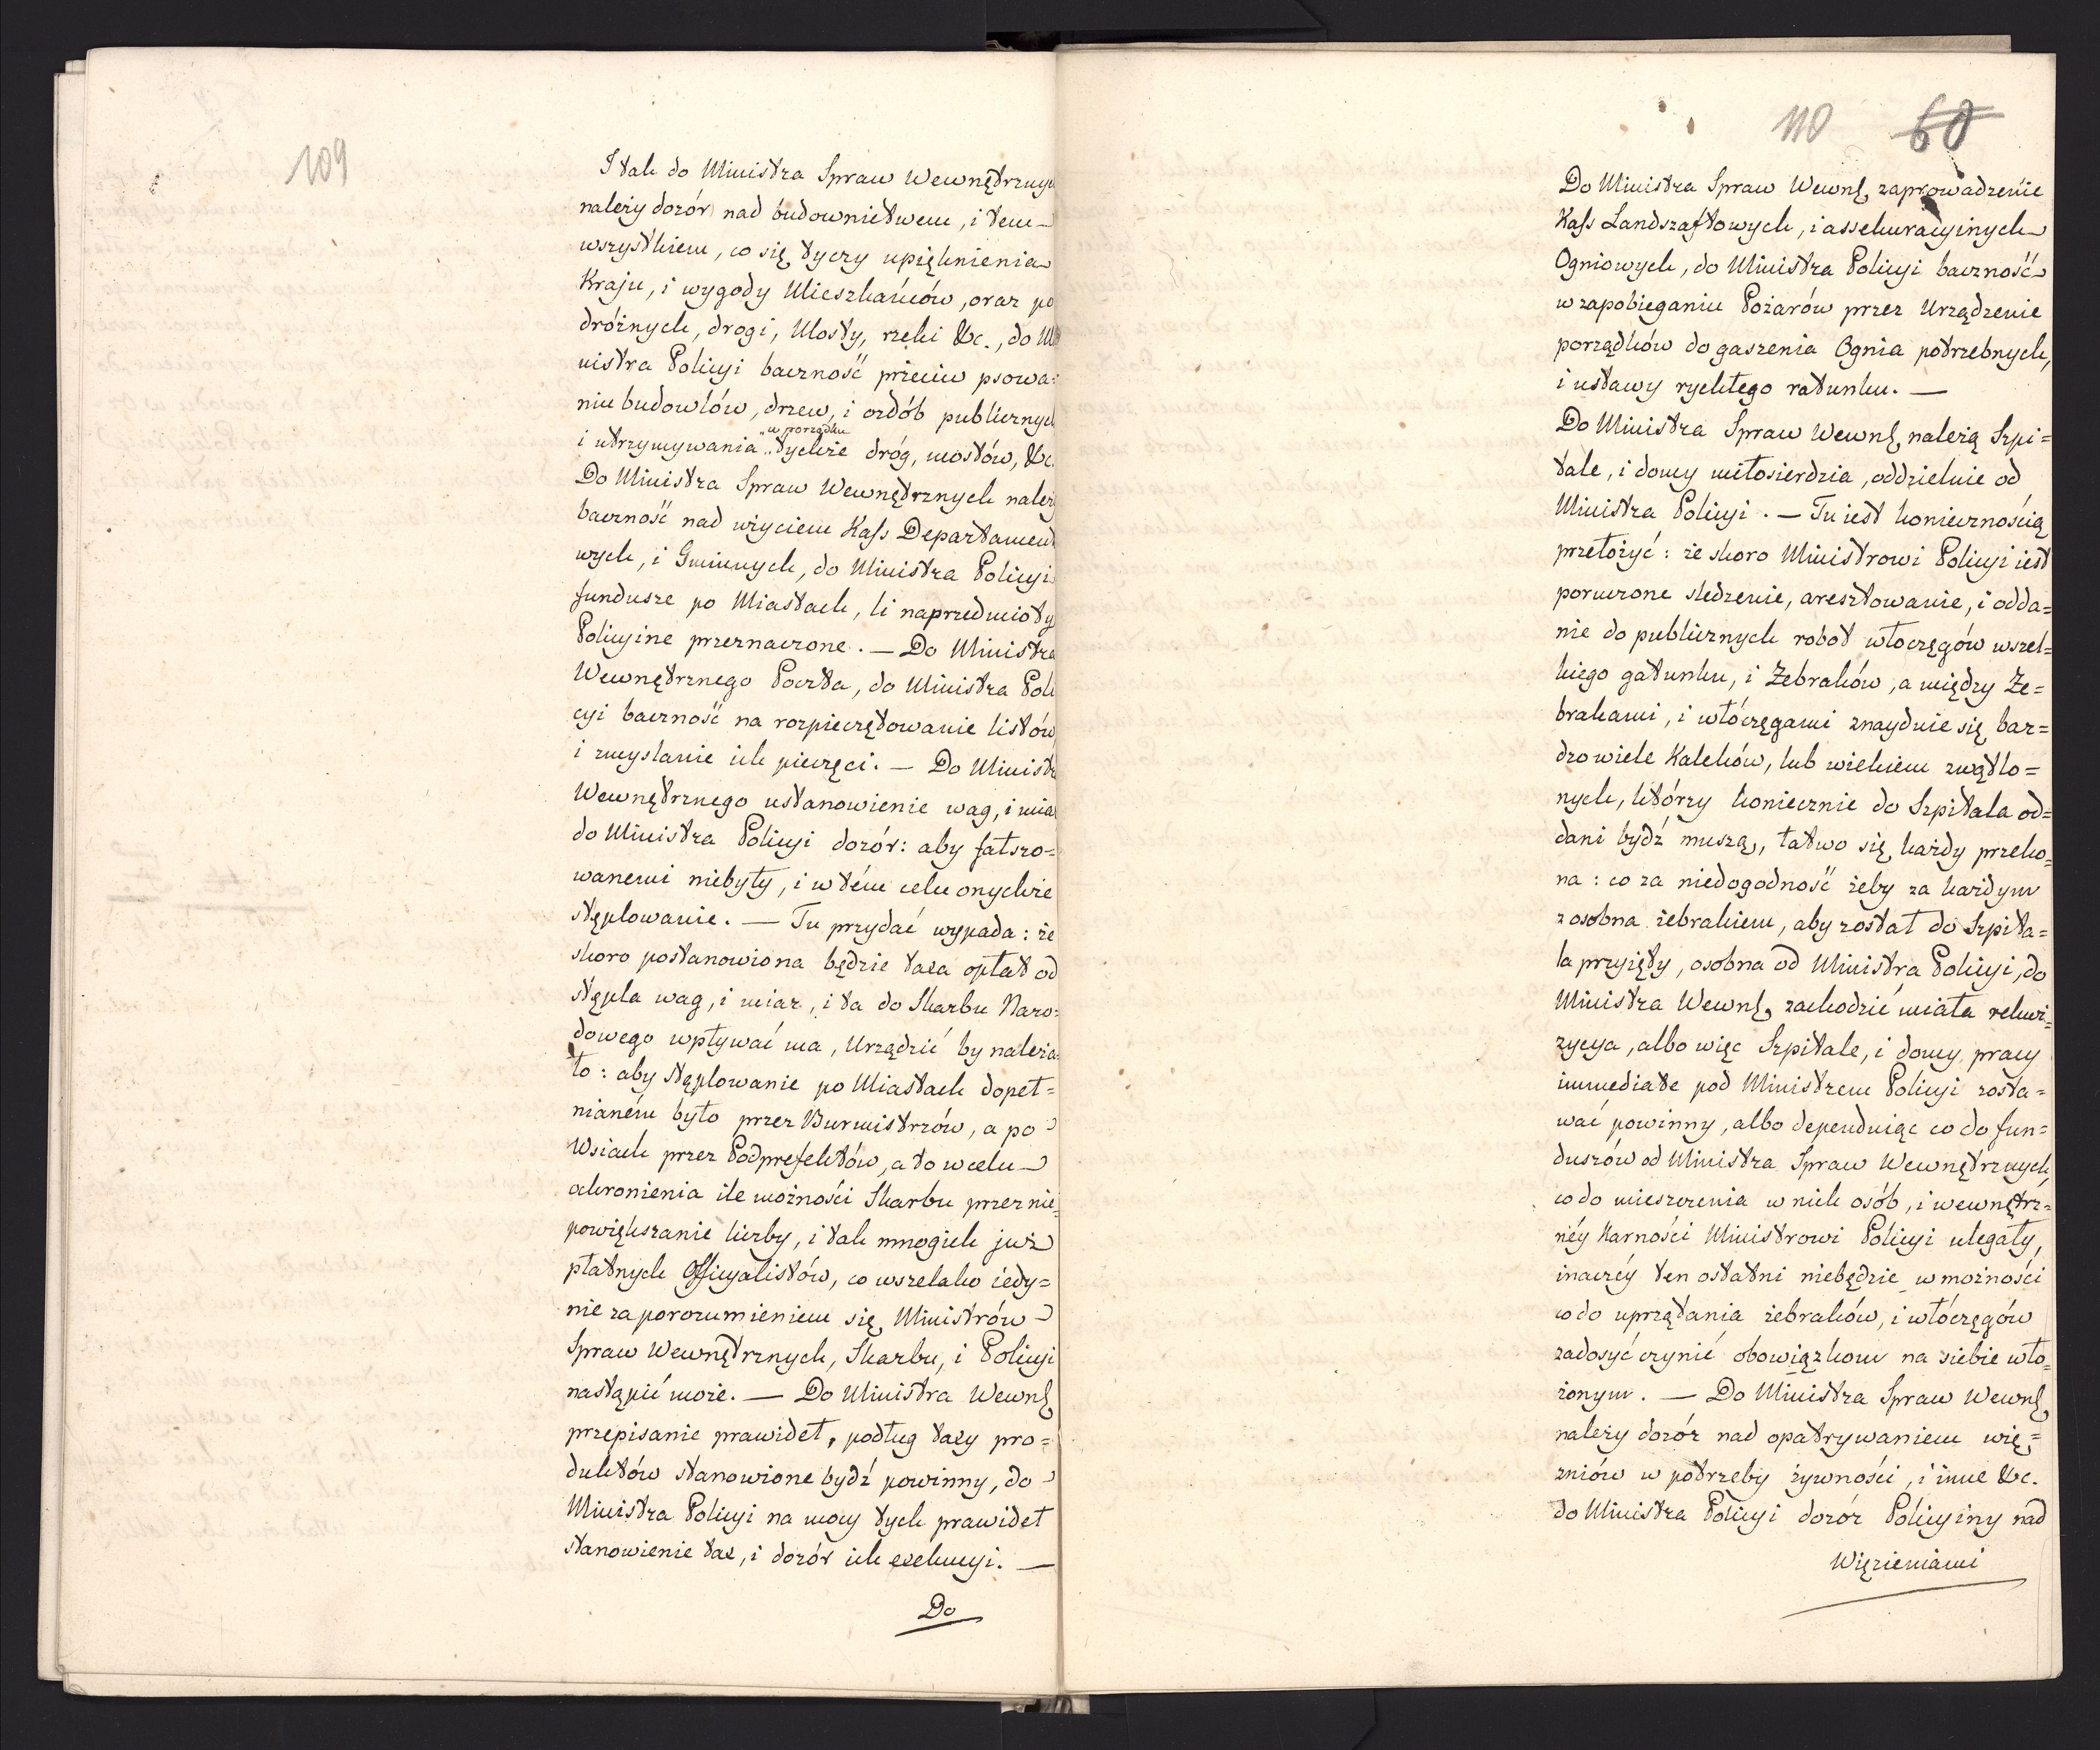 109
I tak do Ministra Spraw Wewnętrznych
należy dozór nad budownictwem, i tem
wszystkiem, co się tyczy upięknienia
Kraju, i wygody Mieszkańców, oraz po
dróżnych, drogi, Mosty, rzeki &c., do Mi
nistra Policyi baczność przeciw psowa=
niu budowlów, drzew, i ozdób publicznych
„w porządku
i utrzymywania „tychże dróg, mostów, &c.
Do Ministra Spraw Wewnętrznych należy
baczność nad użyciem Kass Departamento
wych, i Gminnych, do Ministra Policyi
fundusze po Miastach, li naprzedmioty
Policyine przeznaczone. — Do Ministra
Wewnętrznego Poczta, do Ministra Poli
cyi baczność na rozpieczętowanie listów
i zmyslanie ich pieczęci. — Do Ministra
Wewnętrznego ustanowienie wag, i miar
do Ministra Policyi dozór: aby fałszo=
wanemi niebyły, i w tém celu onychże
stęplowanie. — Tu przydać wypada: że
skoro postanowiona będzie taxa opłat od
stępla wag, i miar, i ta do Skarbu Naro=
dowego wpływać ma, Urządzić by należa=
ło: aby stęplowanie po Miastach dopeł=
nianém było przez Burmistrzów, a po
Wsiach przez Podprefektów, a to w celu
ochronienia ile możności Skarbu przez nie=
powiększanie liczby, i tak mnogich już
płatnych Officyalistów, co wszelako iedy=
nie za porozumieniem się Ministrów
Spraw Wewnętrznych, Skarbu, i Policyi
nastąpić może. — Do Ministra Wewnę.
przepisanie prawideł, podług taxy pro=
duktów stanowione bydź powinny, do
Ministra Policyi na mocy tych prawideł
stanowienie tax, i dozór ich exekucyi. —
Do
110 60
Do Ministra Spraw Wewnę. zaprowadzenie
Kass Landszaftowych, i assekuracyinych
Ogniowych, do Ministra Policyi baczność
w zapobieganiu Pożarów przez Urządzenie
porządków do gaszenia Ognia potrzebnych,
i ustawy rychłego ratunku. —
Do Ministra Spraw Wewnę. należą Szpi=
tale, i domy miłosierdzia, oddzielnie od
Ministra Policyi. — Tu iest koniecznością
przełożyć: że skoro Ministrowi Policyi iest
poruczone sledzenie, aresztowanie, i odda=
nie do publicznych robot włoczęgów wszel=
kiego gatunku, i Żebraków, a między Że=
brakami, i włóczęgami znayduie się bar=
dzo wiele Kaleków, lub wiekiem zwątlo=
nych, którzy koniecznie do Szpitala od=
dani bydź muszą, łatwo się każdy przeko=
na: co za niedogodność żeby za każdym
z osobna żebrakiem, aby został do Szpita=
la przyięty, osobna od Ministra Policyi, do
Ministra Wewnę. zachodzić miała rekwi=
zycya, albo więc Szpitale, i domy pracy
immediate pod Ministrem Policyi zosta=
wać powinny, albo dependuiąc co do fun=
duszów od Ministra Spraw Wewnętrznych,
co do mieszczenia w nich osób, i wewnętrz=
néy Karności Ministrowi Policyi ulegały,
inaczéy ten ostatni niebędzie w możności
co do uprzątania żebraków, i włóczęgów
zadosyć czynić obowiązkom na siebie wło=
żonym. — Do Ministra Spraw Wewnę.
należy dozór nad opatrywaniem wię=
zniów w potrzeby żywności, i inne &c.
do Ministra Policyi dozór Policyiny nad
Więzieniami